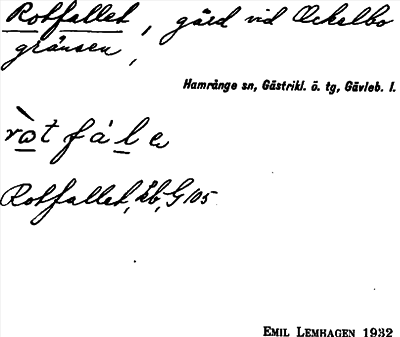 Rotfallet, gård vid Ockelbo
gränsen,
Hamrånge sn, Gästrikl. ö. tg, Gävleb. l.
ròt fál e
Rotfallet, äb, G 105
EMIL LEMHAGEN 1932